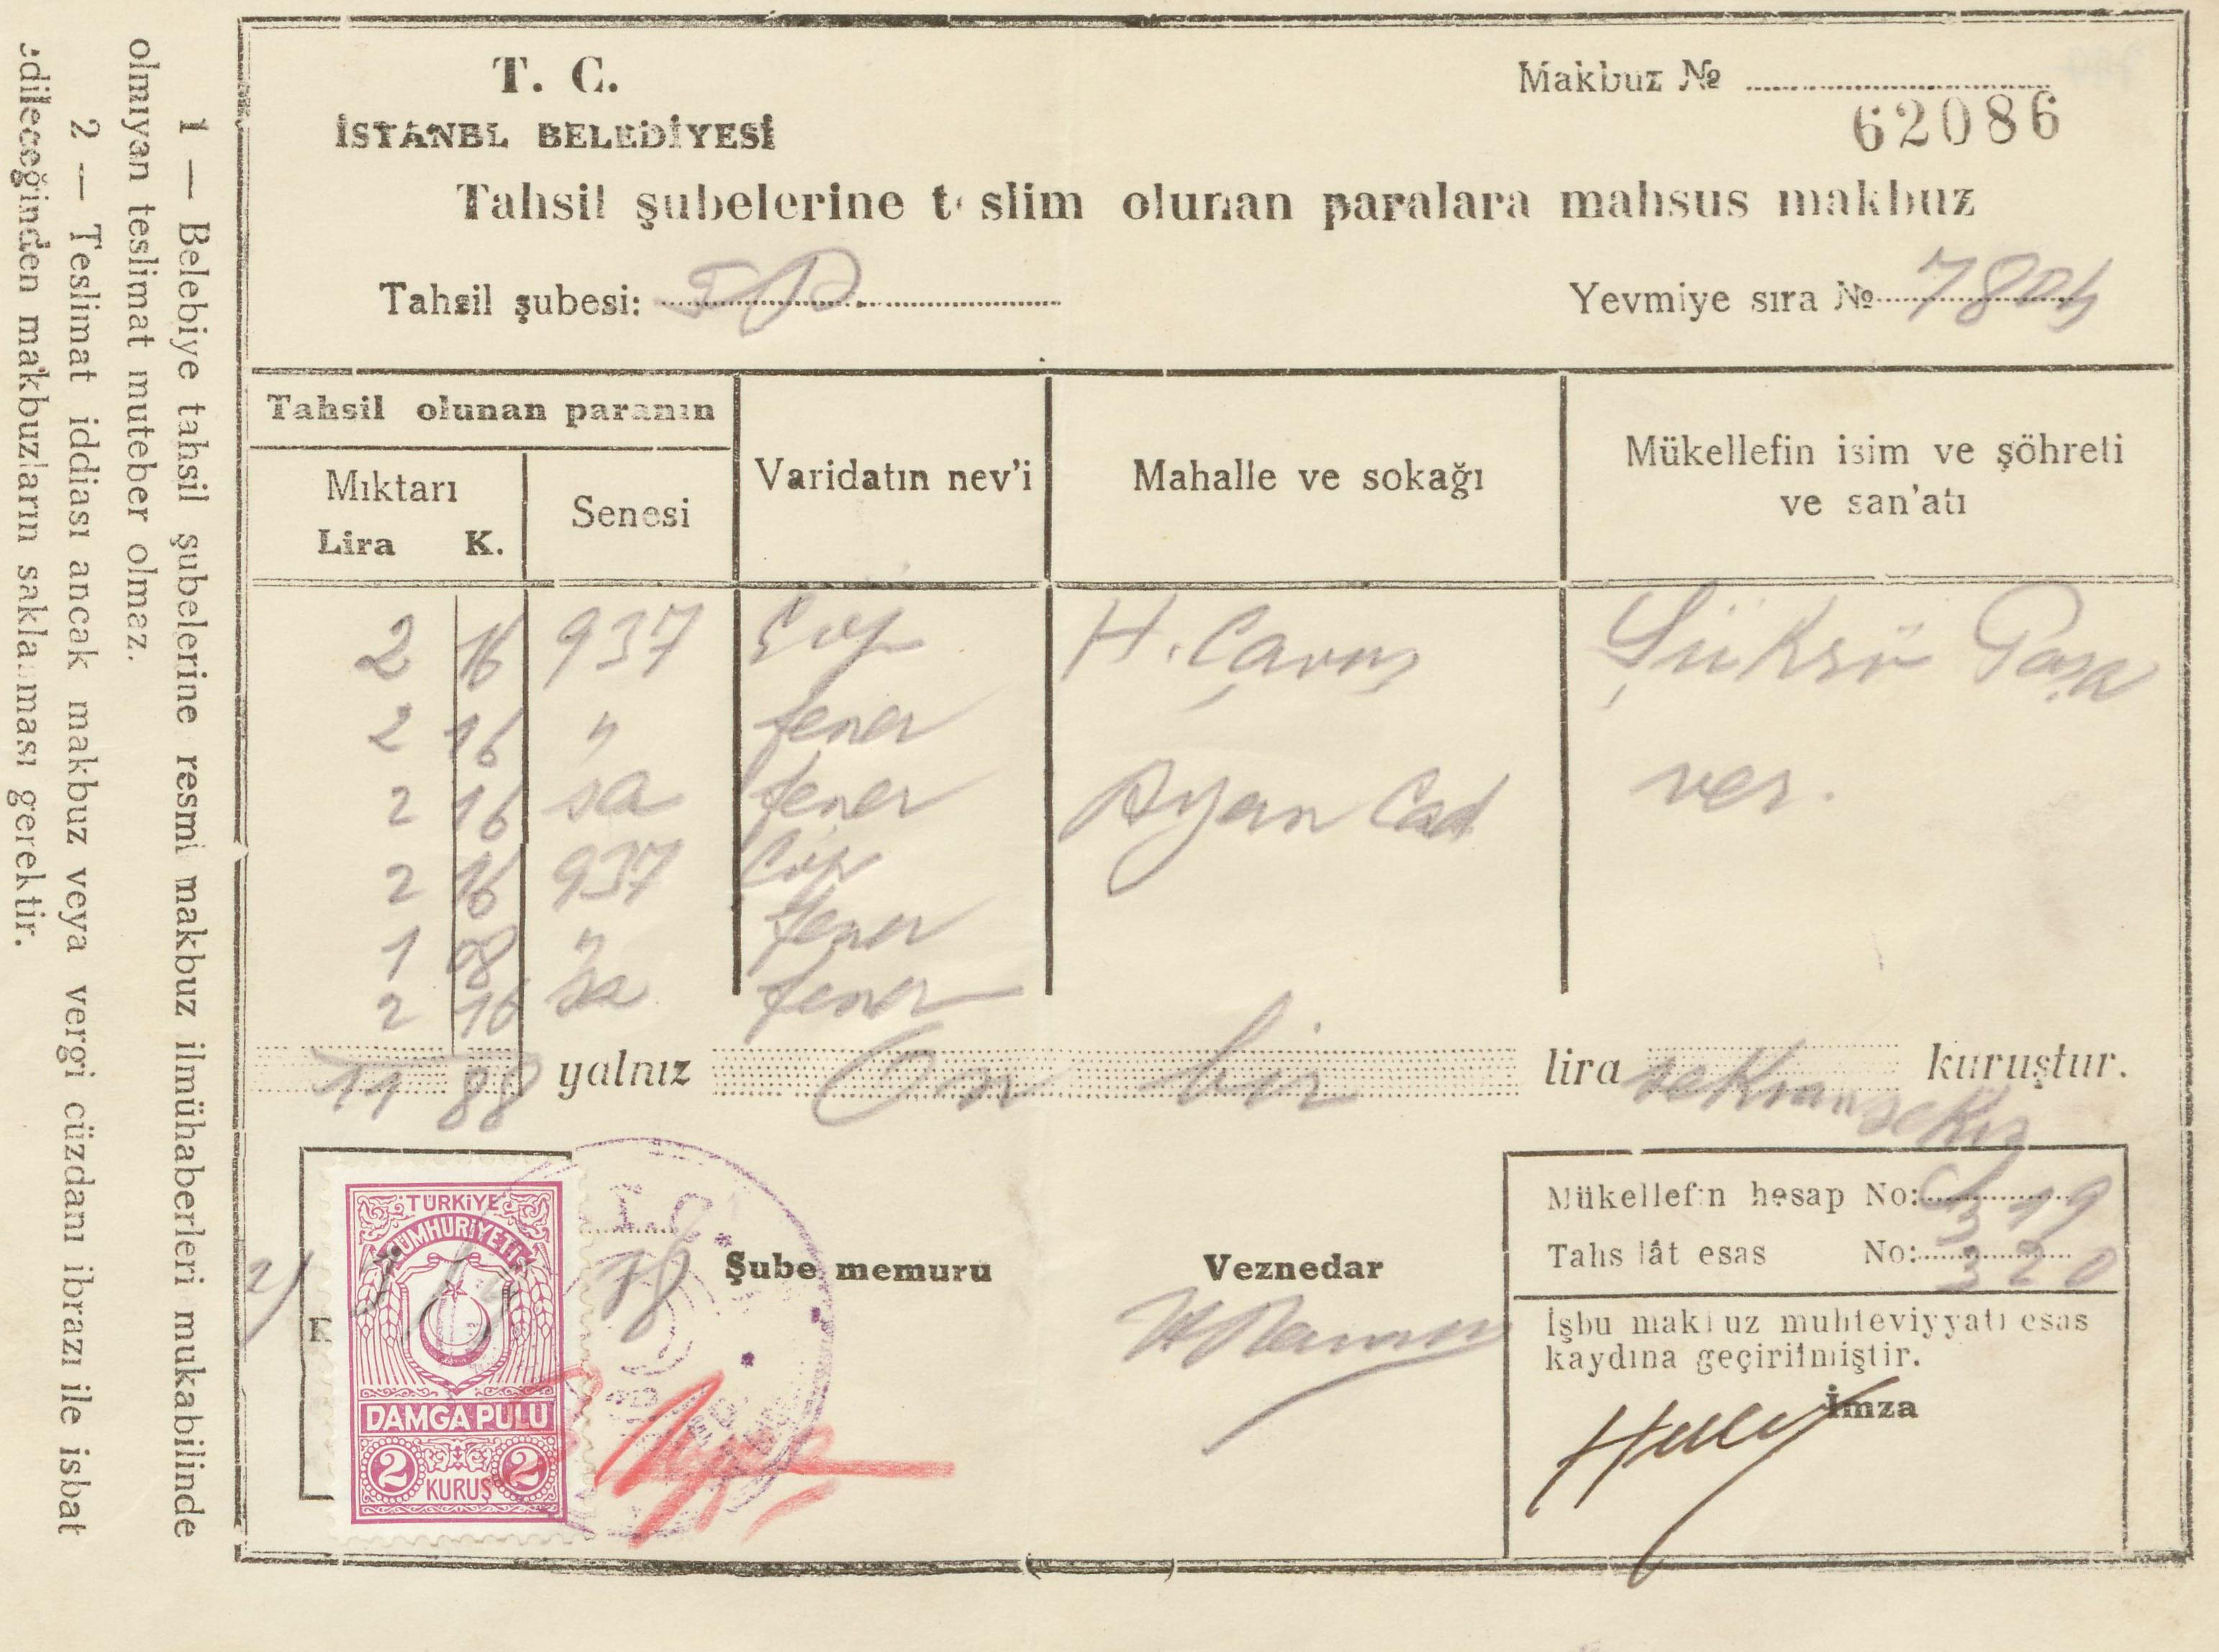 T. C.
İSTANBL BELEDİYESİ
Makbuz № 62086
Tahsil şubelerine teslim olunan paralara mahsus makbuz
Tahsil şubesi:
Yevmiye sıra №
Tahsil olunan paranın
Mıktarı
Lira K.
Senesi
Varidatın nev'i
Mahalle ve sokağı
Mükellefin isim ve şöhreti
ve san'atı
2 16 937 H. Çavuş Şükrü Paşa
2 16 " fener
2 16 sa fener Ayan Cad ver.
2 16 937 Çöp
1 08 " fener
2 16 sa fener
11 88 yalnız On bir lira seksensekiz kuruştur.
TÜRKİYE
CÜMHURİYETİ
DAMGA PULU
2 KURUŞ 2
T.C.
Şube memuru
Veznedar
Mükellefin hesap No: 319
Tahsilât esas No: 320
İşbu makbuz muhteviyyatı esas
kaydına geçirilmiştir.
İmza
1 — Belebiye tahsil şubelerine resmi makbuz ilmühaberleri mukabilinde
olmıyan teslimat muteber olmaz.
2 — Teslimat iddiası ancak makbuz veya vergi cüzdanı ibrazı ile isbat
edileceğinden makbuzların saklanması gerektir.